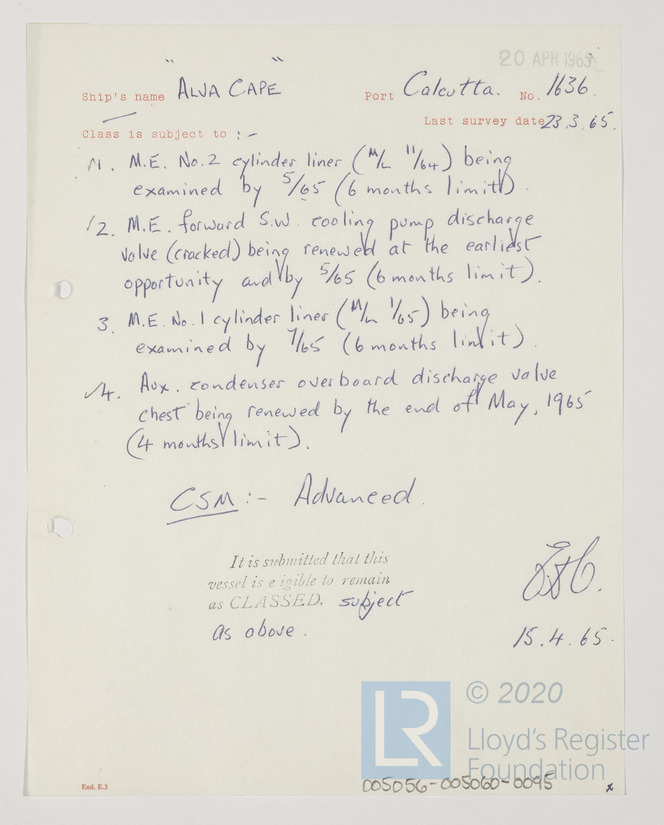 20 APR 1965
Ship's name "ALVA CAPE" Port Calcutta. No. 1636.
Last survey date 23.3.65.
Class is subject to :-
1. M.E. No.2 cylinder liner (M/L 11/64) being
examined by 5/65 (6 months limit).
2. M.E. forward S.W. cooling pump discharge
valve (cracked) being renewed at the earliest
opportunity and by 5/65 (6 months limit).
3. M.E. No.1 cylinder liner (M/L 1/65) being
examined by 7/65 (6 months limit).
4. Aux. condenser overboard discharge valve
chest being renewed by the end of May, 1965
(4 months limit).
CSM :- Advanced.
It is submitted that this
vessel is eligible to remain
as CLASSED. subject
as above.
15.4.65.
LR © 2020
Lloyd's Register
Foundation
End. E.3
005056-005060-0095